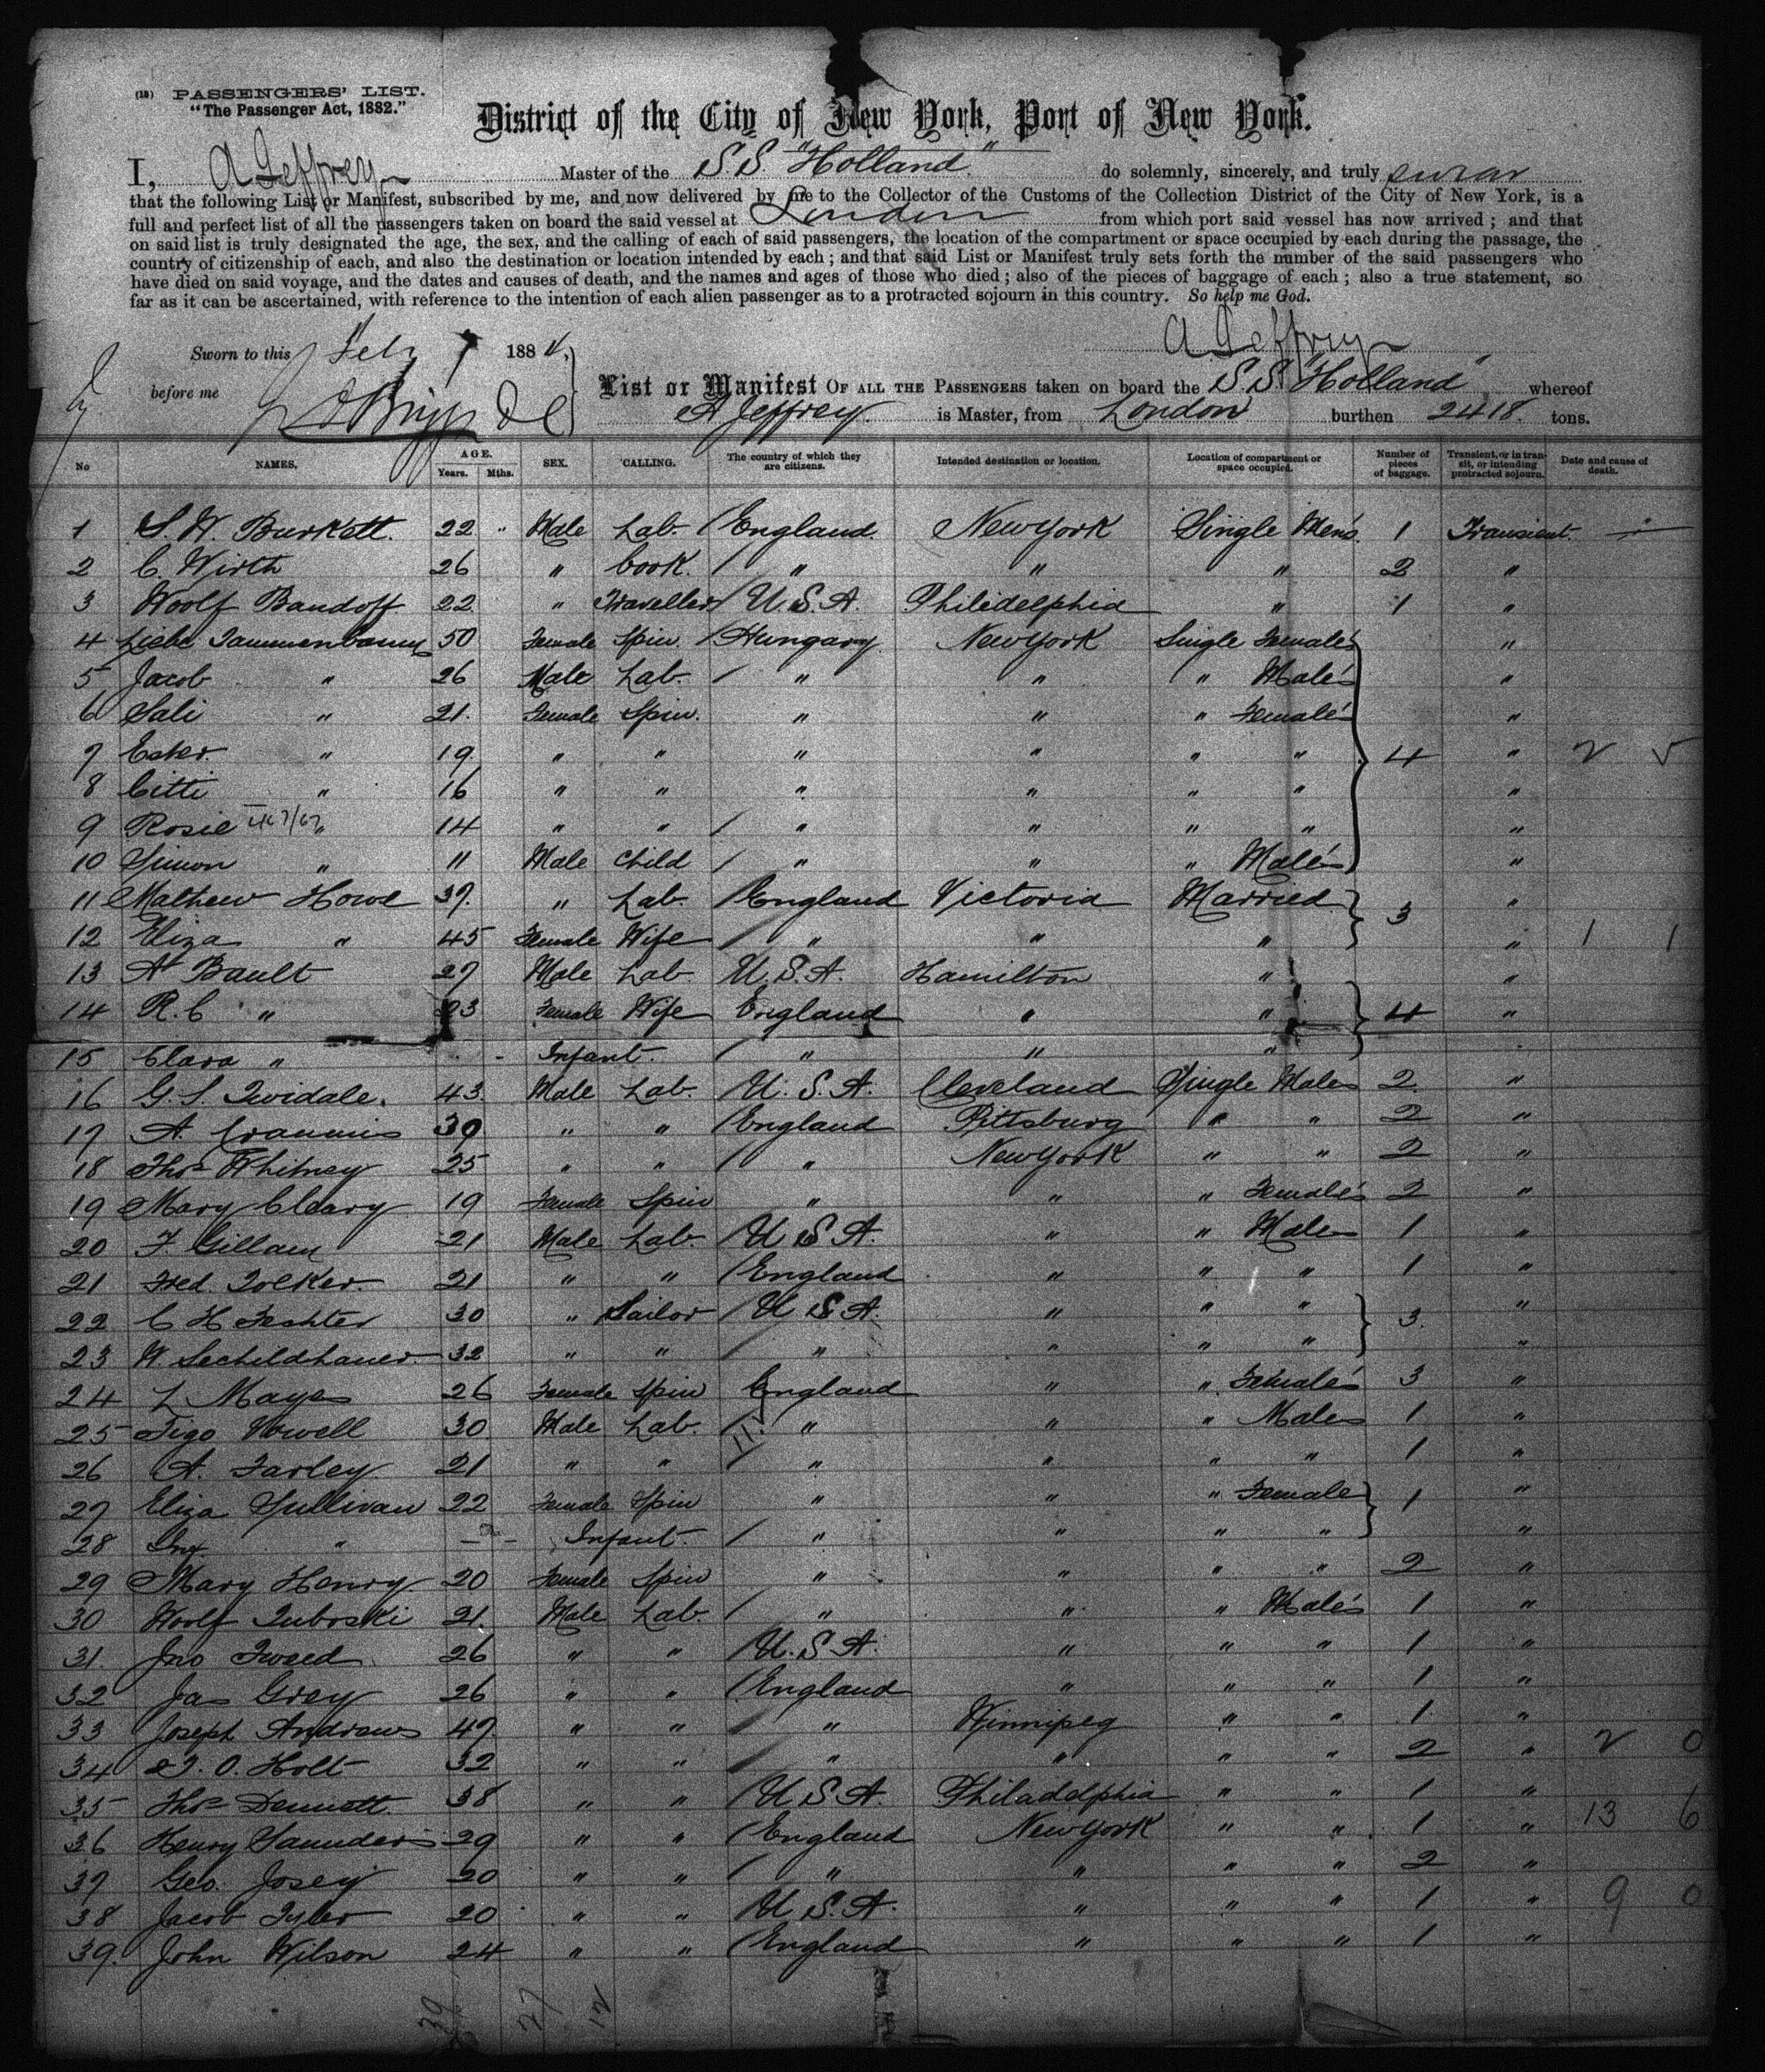 (18) PASSENGERS' LIST.
"The Passenger Act, 1882."
District of the City of New York, Port of New York.
I, A Jeffrey Master of the S.S. "Holland" do solemnly, sincerely, and truly swear
that the following List or Manifest, subscribed by me, and now delivered by me to the Collector of the Customs of the Collection District of the City of New York, is a
full and perfect list of all the passengers taken on board the said vessel at London from which port said vessel has now arrived; and that
on said list is truly designated the age, the sex, and the calling of each of said passengers, the location of the compartment or space occupied by each during the passage, the
country of citizenship of each, and also the destination or location intended by each; and that said List or Manifest truly sets forth the number of the said passengers who
have died on said voyage, and the dates and causes of death, and the names and ages of those who died; also of the pieces of baggage of each; also a true statement, so
far as it can be ascertained, with reference to the intention of each alien passenger as to a protracted sojourn in this country. So help me God.
A Jeffrey
Sworn to this Feb 7 1884,
before me
List or Manifest OF ALL THE PASSENGERS taken on board the S.S. "Holland" whereof
A Jeffrey. is Master, from London burthen 2418. tons.
No NAMES. AGE. Years. Mths. SEX. CALLING. The country of which they are citizens. Intended destination or location. Location of compartment or space occupied. Number of pieces of baggage. Transient, or in transit, or intending protracted sojourn. Date and cause of death.
1 S. W. Burkett. 22 " Male Lab. England. New York Single Mens. 1 Transient.
2 C Wirth 26 " Cook. " " " 2 "
3 Woolf Bandoff 22 " Traveller U.S.A. Philidelphia " 1 "
4 Liebe Tammenbaum 50 Female Spin. Hungary New York Single Female's "
5 Jacob " 26 Male Lab. " " " Male's "
6 Sali " 21. Female Spin. " " " Female's "
7 Ester. " 19. " " " " " " 4 " 2 5
8 Citti " 16 " " " " " " "
9 Rosie " 14 " " " " " " "
10 Simon " 11 Male Child " " " Male's "
11 Mathew Howe 37. " Lab. England Victoria Married 3 "
12 Eliza " 45 Female Wife " " " " 1 1
13 A Bault 27 Male Lab. U.S.A. Hamilton " "
14 R. C " 23 Female Wife England " " 4 "
15 Clara " - Infant. " " "
16 G. S. Tvidale. 43. Male Lab. U.S.A. Cleveland Single Males 2 "
17 A. 39 " " England Pittsburg " " 2 "
18 Thos Whitney 25 " " " New York " " 2 "
19 Mary Cleary 19 Female Spin " " " Female's 2 "
20 F. Gillam 21 Male Lab. U.S.A. " " Males 1 "
21 Fred. Tolker. 21 " " England " " " 1 "
22 C H Feshter 30 " Sailor U.S.A. " " " 3. "
23 W. Sechildhauer 32 " " " " " " "
24 L Mayes 26 Female Spin England " " Female's 3 "
25 Tigo Nowell 30 Male Lab. " " " Males 1 "
26 A. Farley 21 " " " " " " 1 "
27 Eliza Sullivan 22 Female Spin " " " Female 1 "
28 " - - Infant. " " " " "
29 Mary Henry 20 Female Spin " " " " 2 "
30 Woolf Tuboski 21. Male Lab. " " " Male's 1 "
31. Jno Tweed 26 " " U.S.A. " " " 1 "
32 Jas Grey 26 " " England " " " 1 "
33 Joseph Andrews 47. " " " Winnipeg " " 1 "
34 T. O. Holt 32 " " " " " " 2 " 2 0
35 Thos Dennett. 38 " " U.S.A. Philadelphia " " 1 "
36 Henry Saunders 29 " " England New York " " 1 " 13 6
37 Geo. Josey 20 " " " " " " 2 "
38 Jacob Tyler 20 " " U.S.A. " " " 1 " 9 0
39. John Wilson 24 " " England " " " 1 "
39 27 12